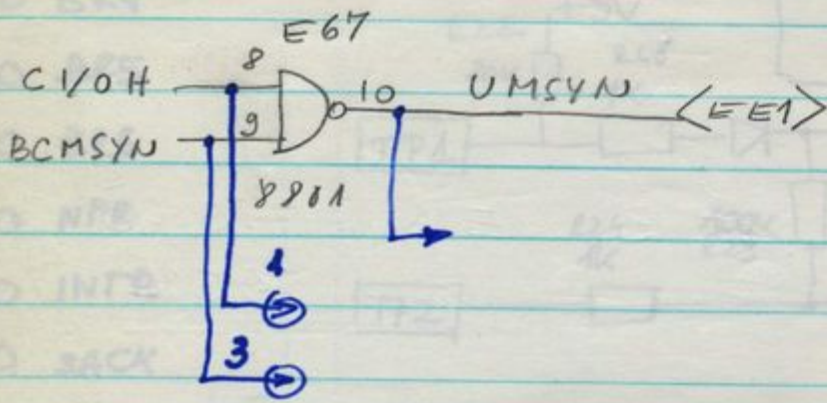 E67
C1/OH 8 10 UMSYN <EE1>
BCMSYN 9
8881
1
3